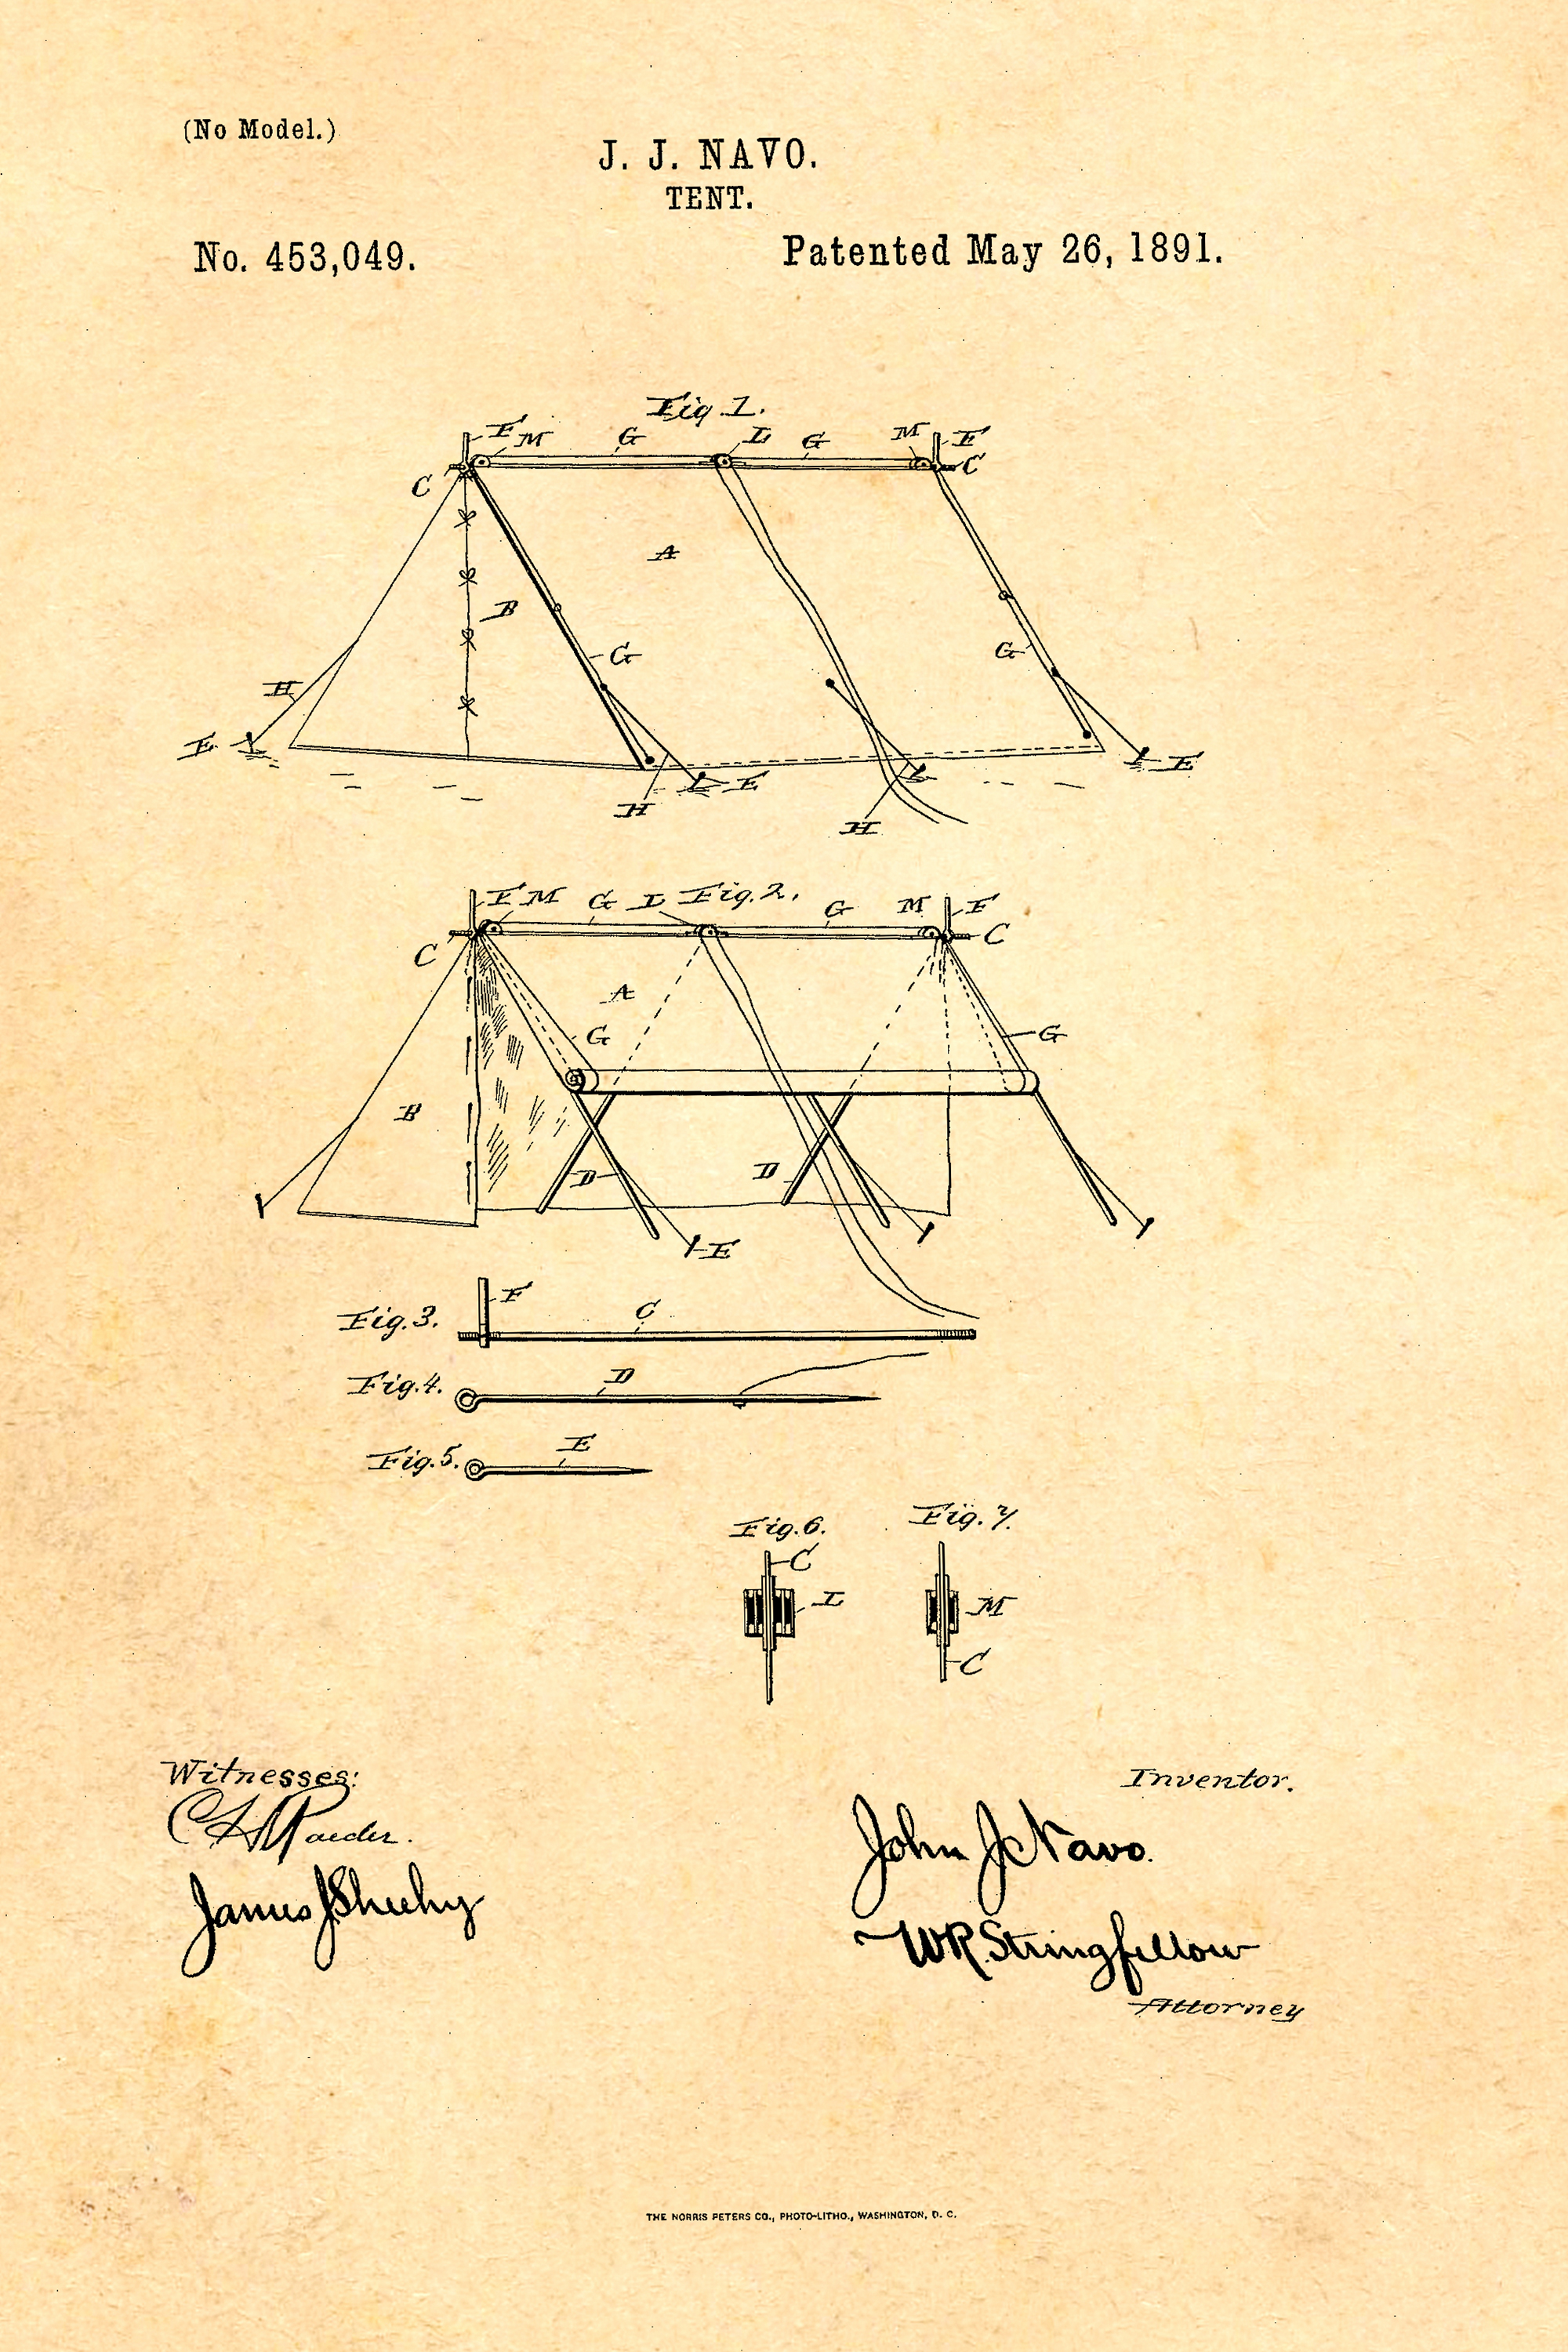 (No Model.)
J. J. NAVO.
TENT.
No. 453,049.
Patented May 26, 1891.
Fig 1.
F M G L G M F
C C
A
B
G G
H
E E
E
H
H
F M G L Fig. 2. G M F
C C
A
G G
B
D D
E
F
Fig. 3. C
Fig. 4. D
Fig. 5. E
Fig. 6. Fig. 7.
C
L M
C
Witnesses:
Inventor.
John J Navo.
James J Sheehy
W R Stringfellow
Attorney
THE NORRIS PETERS CO., PHOTO-LITHO., WASHINGTON, D. C.